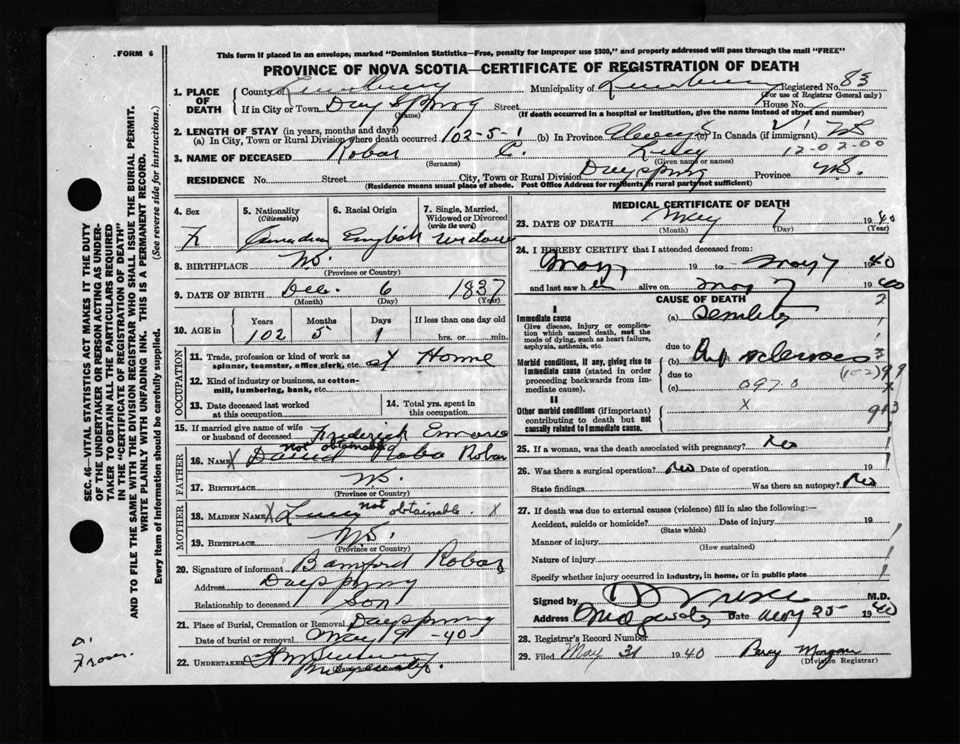 FORM 6
This form if placed in an envelope, marked "Dominion Statistics—Free, penalty for improper use $300," and properly addressed will pass through the mail "FREE"
PROVINCE OF NOVA SCOTIA—CERTIFICATE OF REGISTRATION OF DEATH
1. PLACE OF DEATH
County of Lunenburg Municipality of Lunenburg Registered No. 83
(For use of Registrar General only)
If in City or Town Day Spring Street House No.
(Name) (If death occurred in a hospital or institution, give the name instead of street and number)
2. LENGTH OF STAY (in years, months and days)
(a) In City, Town or Rural Division where death occurred 102-5-1 (b) In Province Always (c) In Canada (if immigrant)
12-02-00
3. NAME OF DECEASED Robar C. Lucy
(Surname) (Given name or names)
RESIDENCE No. Street City, Town or Rural Division Dayspring Province N.S.
(Residence means usual place of abode. Post Office Address for residents in rural parts not sufficient)
4. Sex 5. Nationality (Citizenship) 6. Racial Origin 7. Single, Married, Widowed or Divorced (write the word)
F Canadian English widow
8. BIRTHPLACE N.S.
(Province or Country)
9. DATE OF BIRTH Dec. 6 1837
(Month) (Day) (Year)
10. AGE in Years Months Days If less than one day old
102 5 1 hrs. or min.
OCCUPATION
11. Trade, profession or kind of work as spinner, teamster, office clerk, etc. at Home
12. Kind of industry or business, as cotton-mill, lumbering, bank, etc.
13. Date deceased last worked at this occupation 14. Total years spent in this occupation
15. If married give name of wife or husband of deceased Frederick
not obtainable
FATHER
16. NAME X David Robar
17. BIRTHPLACE N.S.
(Province or Country)
MOTHER
18. MAIDEN NAME X Lucy not obtainable. X
19. BIRTHPLACE N.S.
(Province or Country)
20. Signature of informant Bamford Robar
Address Dayspring
Relationship to deceased Son
21. Place of Burial, Cremation or Removal Dayspring
Date of burial or removal May 9 -40
22. UNDERTAKER
MEDICAL CERTIFICATE OF DEATH
23. DATE OF DEATH May 7 1940
(Month) (Day) (Year)
24. I HEREBY CERTIFY that I attended deceased from:
May 19 to May 7 1940
and last saw her alive on May 7 1940
CAUSE OF DEATH
I
Immediate cause (a) Senility 2
Give disease, injury or complication which caused death, not the mode of dying, such as heart failure, asphyxia, asthenia, etc.
due to
Morbid conditions, if any, giving rise to immediate cause (stated in order proceeding backwards from immediate cause).
(b) Art sclerosis 3
due to (102) 99
(c) 097.0 X
II
X
Other morbid conditions (if important) contributing to death but not causally related to immediate cause.
943
25. If a woman, was the death associated with pregnancy? No
26. Was there a surgical operation? No Date of operation 19
State findings Was there an autopsy? No
27. If death was due to external causes (violence) fill in also the following:—
Accident, suicide or homicide? Date of injury 19
(State which)
Manner of injury
(How sustained)
Nature of injury
Specify whether injury occurred in industry, in home, or in public place
Signed by M.D.
Address Date May 25 1940
28. Registrar's Record Number
29. Filed May 31 1940 Percy Morgan
(Division Registrar)
SEC. 46—VITAL STATISTICS ACT MAKES IT THE DUTY OF THE UNDERTAKER OR PERSON ACTING AS UNDERTAKER TO OBTAIN ALL THE PARTICULARS REQUIRED IN THE "CERTIFICATE OF REGISTRATION OF DEATH" AND TO FILE THE SAME WITH THE DIVISION REGISTRAR WHO SHALL ISSUE THE BURIAL PERMIT.
WRITE PLAINLY WITH UNFADING INK. THIS IS A PERMANENT RECORD.
Every item of Information should be carefully supplied. (See reverse side for instructions.)